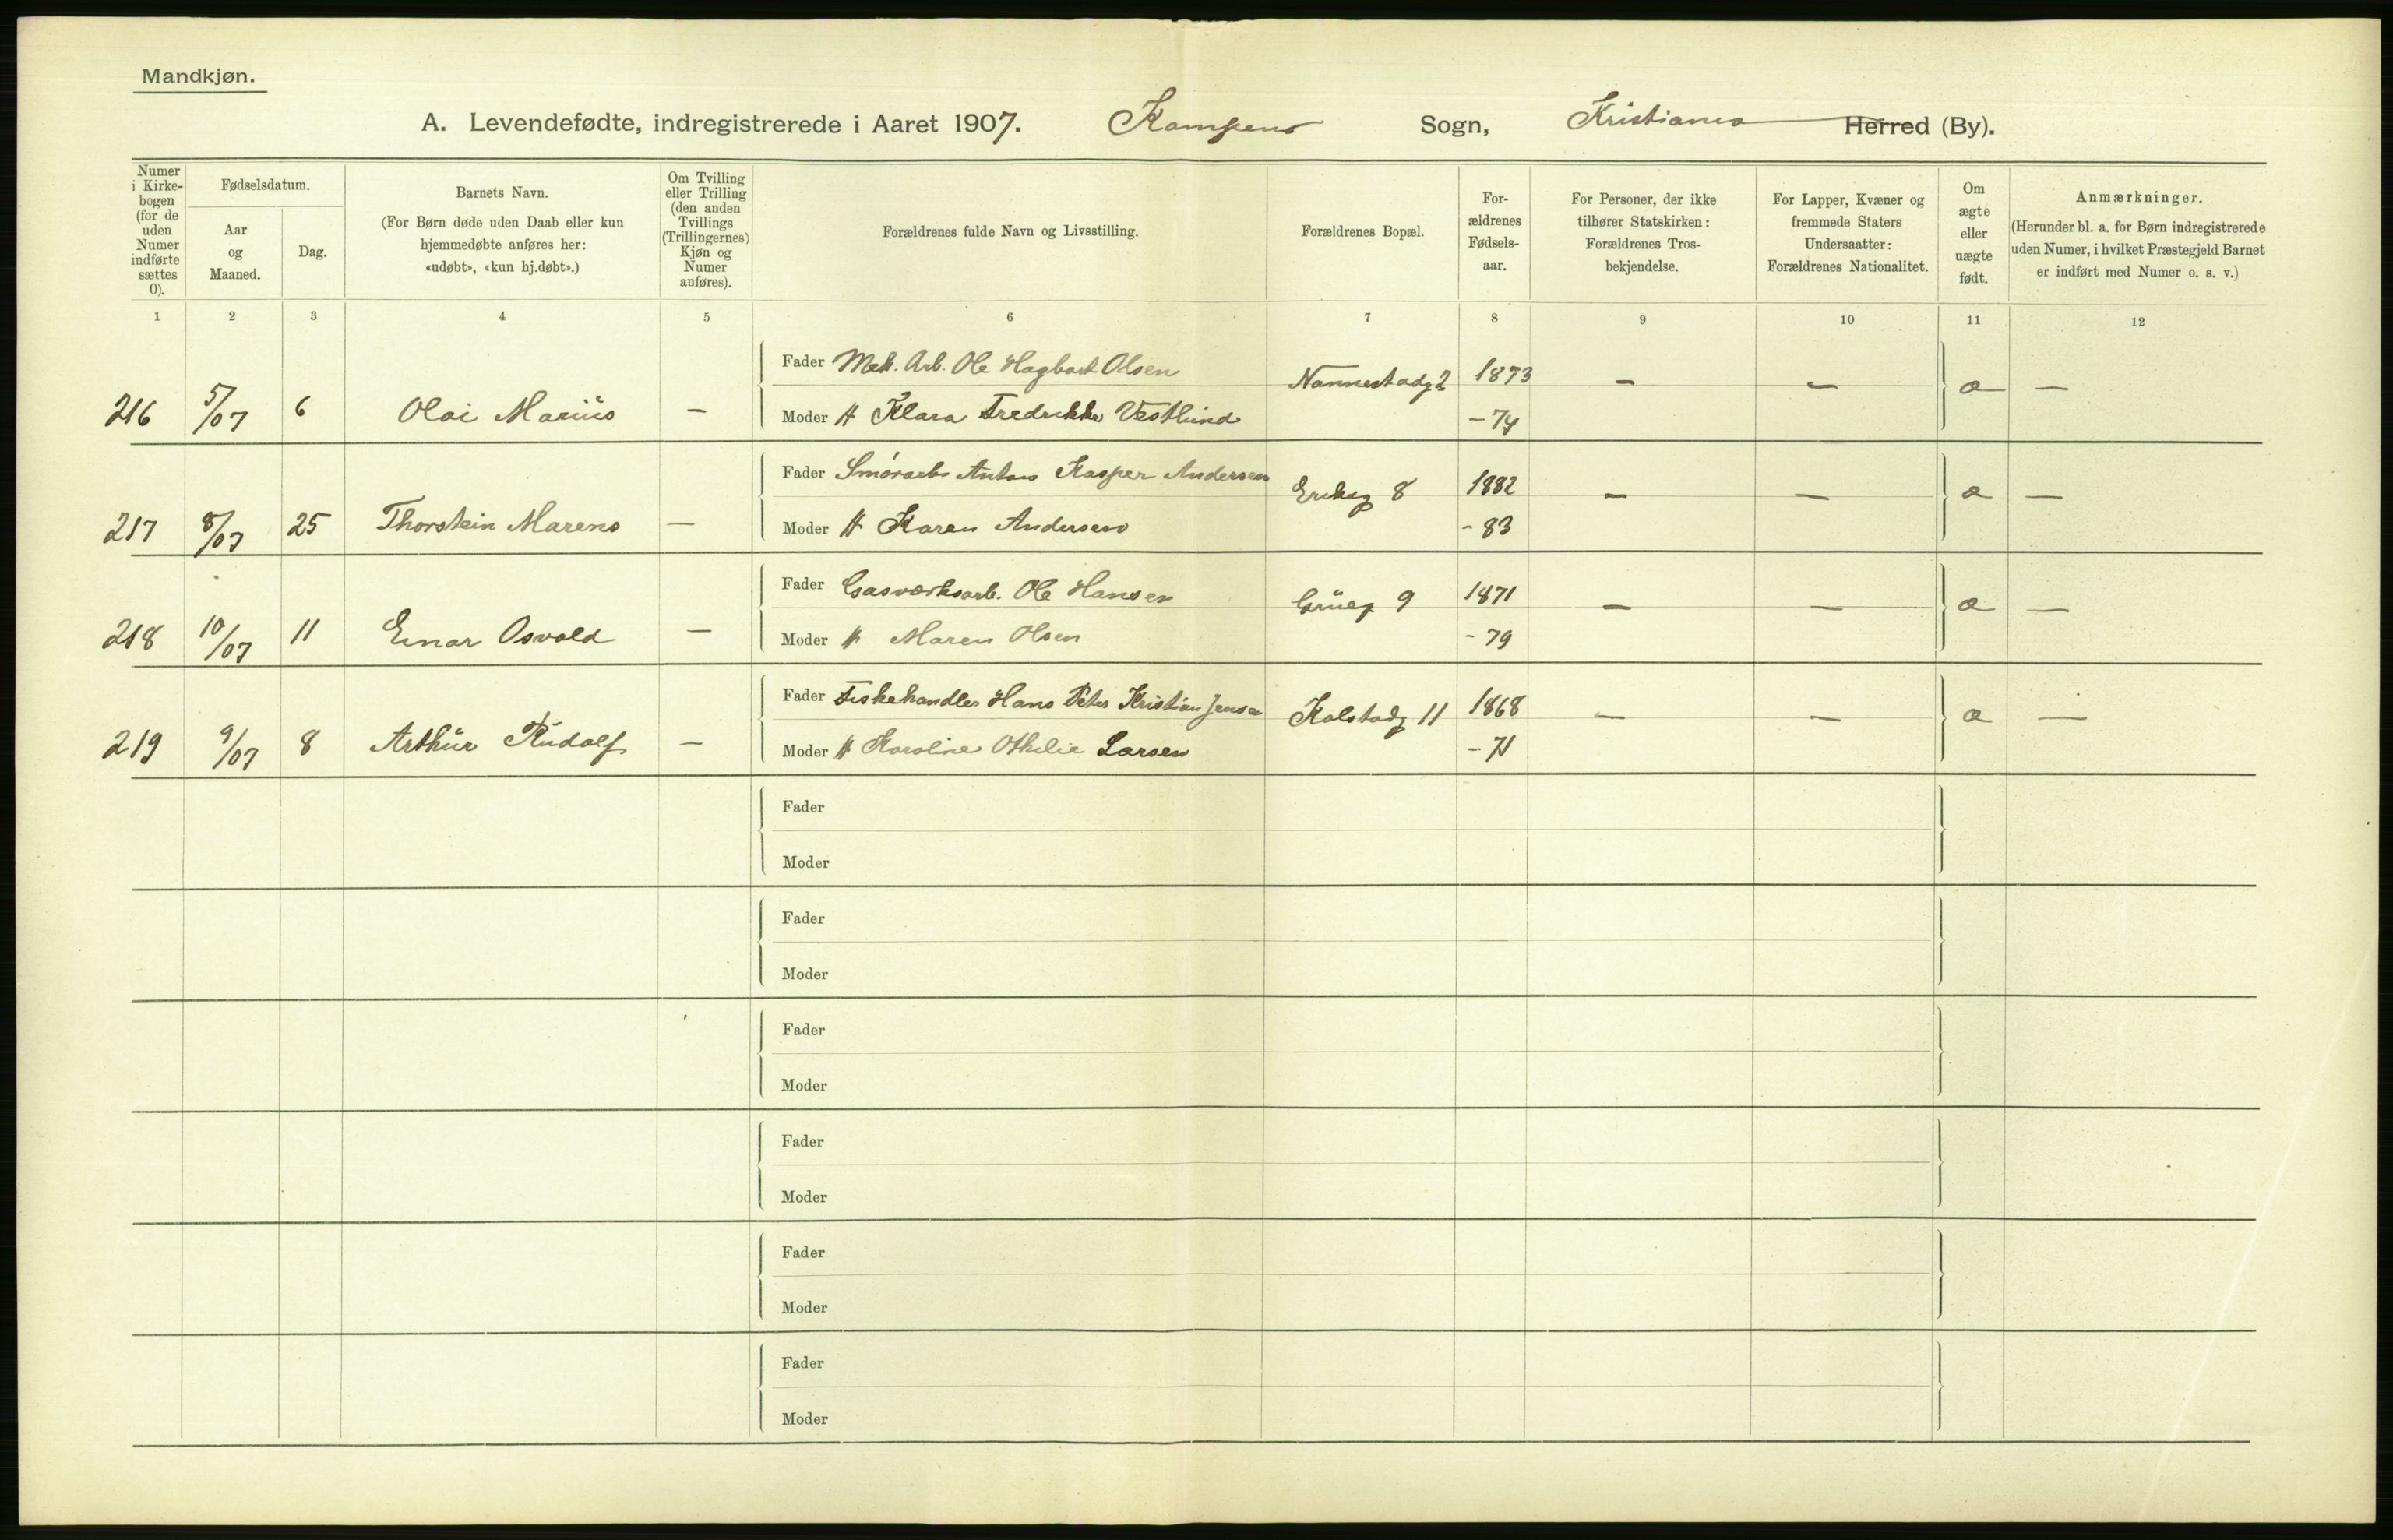 Mandkjøn.
A. Levendefødte, indregistrerede i Aaret 1907. Kampens Sogn, Kristiania Herred (By).
Numer i Kirkebogen (for de uden Numer indførte sættes 0).
Fødselsdatum.
Aar og Maaned.
Dag.
Barnets Navn.
(For Børn døde uden Daab eller kun hjemmedøbte anføres her: «udøbt», «kun hj.døbt».)
Om Tvilling eller Trilling (den anden Tvillings (Trillingernes) Kjøn og Numer anføres).
Forældrenes fulde Navn og Livsstilling.
Forældrenes Bopæl.
Forældrenes Fødselsaar.
For Personer, der ikke tilhører Statskirken: Forældrenes Trosbekjendelse.
For Lapper, Kvæner og fremmede Staters Undersaatter: Forældrenes Nationalitet.
Om ægte eller uægte født.
Anmærkninger.
(Herunder bl. a. for Børn indregistrerede uden Numer, i hvilket Præstegjeld Barnet er indført med Numer o. s. v.)
1 2 3 4 5 6 7 8 9 10 11 12
Fader Mek. Arb. Ole Hagbart Olsen Nannestadg 2 1873 — — æ —
216 5/07 6 Olai Marius — Moder H Klara Fredrikke Vestlund - 74
Fader Smørarb Anton Kasper Andersen Eriksg 8 1882 — — æ —
217 8/07 25 Thorstein Marens — Moder H Karen Andersen - 83
Fader Gasværksarb. Ole Hansen Grüeg 9 1871 — — æ —
218 10/07 11 Einar Osvald — Moder H Maren Olsen - 79
Fader Fiskehandler Hans Peter Kristian Jensen Kolstadg 11 1868 — — æ —
219 9/07 8 Arthur Rudolf — Moder H Karoline Othilie Larsen - 71
Fader
Moder
Fader
Moder
Fader
Moder
Fader
Moder
Fader
Moder
Fader
Moder